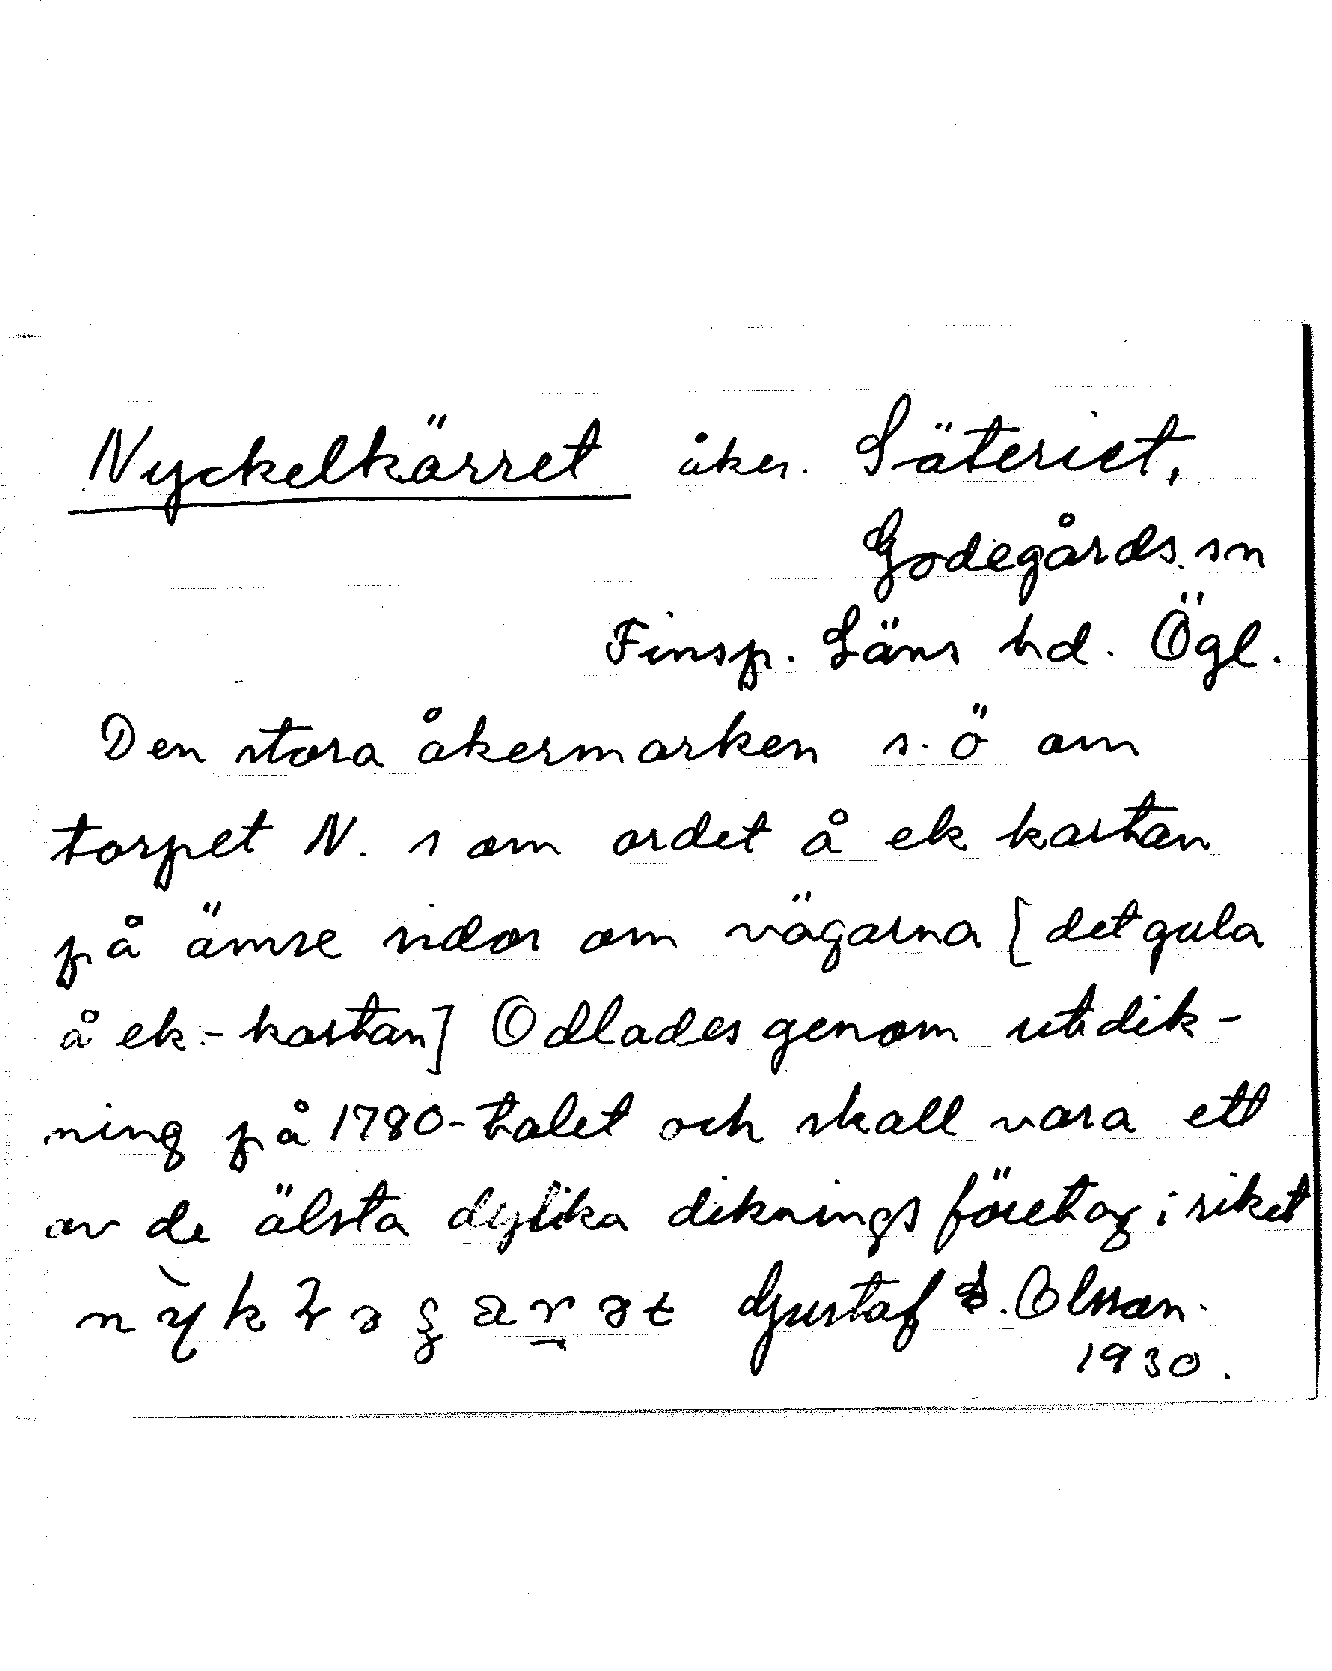 Nyckelkärret åker. Säteriet,
Godegårds sn
Finsp. Läns hd. Ögl.
Den stora åkermarken s. ö om
torpet N. som ordet å ek kartan
på ämse sidor om vägarna [det gula
å ek.-kartan] Odlades genom utdik-
ning på 1780-talet och skall vara ett
av de älsta dylika diknings företag i riket
Gustaf Olsson.
1930.